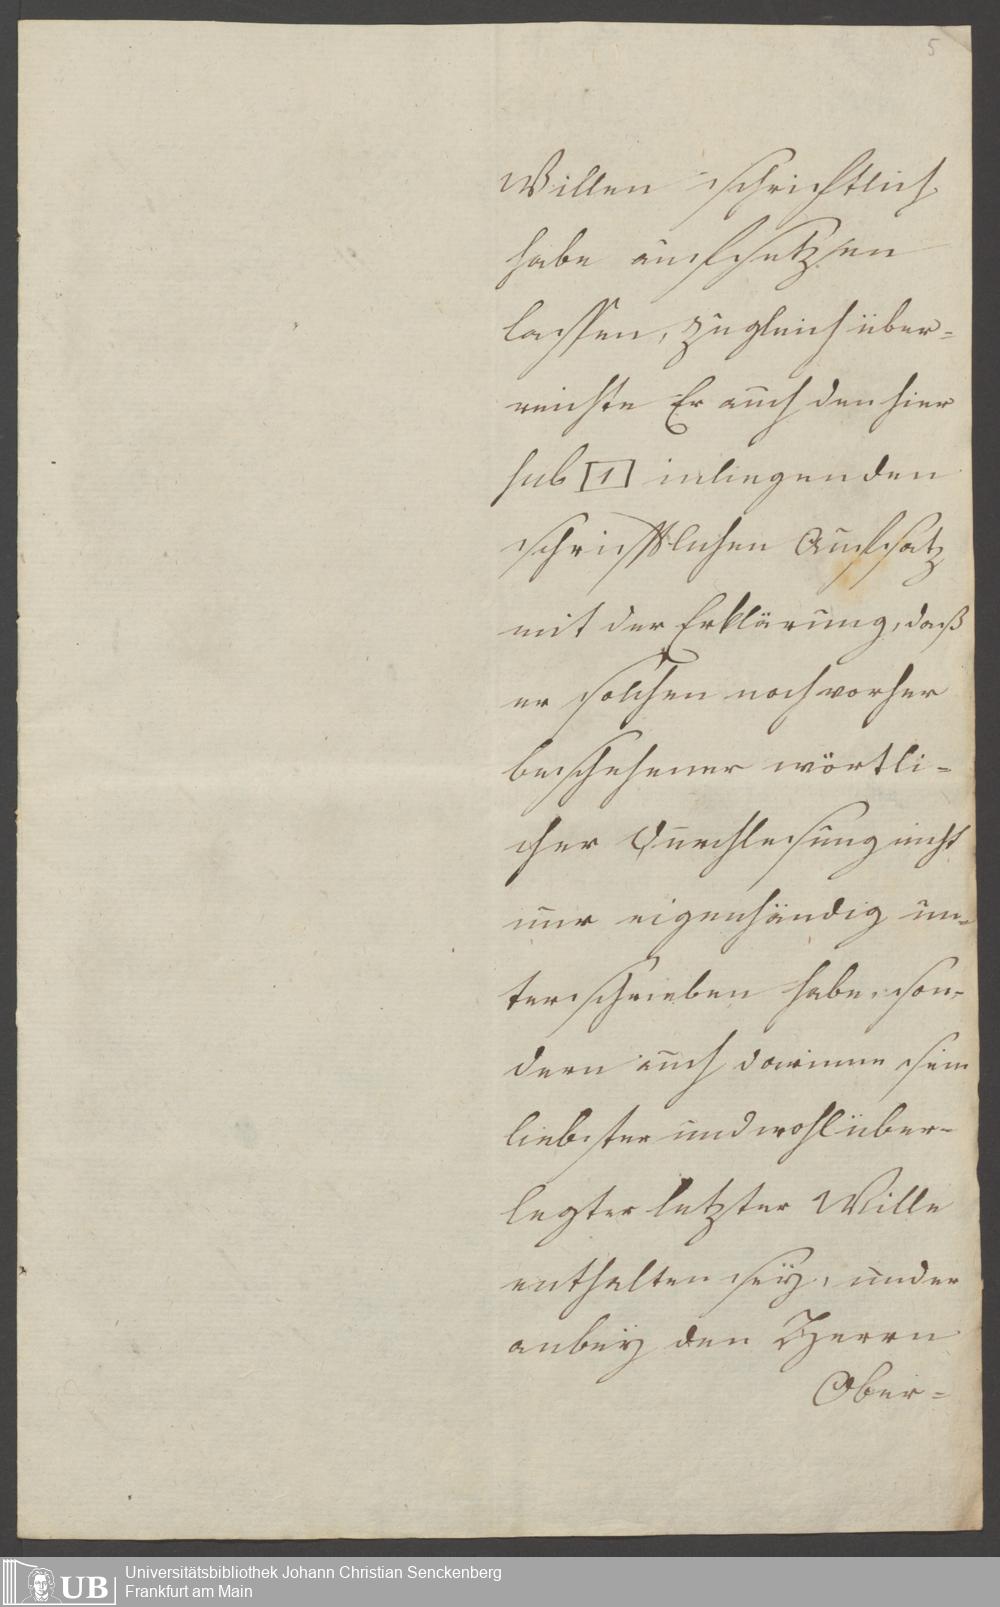 5
Willen schriftlich
habe aufsetzen
lassen, zugleich über=
reichte Er auch den hier
sub [1] inliegenden
schrifftlichen Aufsatz
mit der Erklärung, daß
er solchen nach vorher
beschehener wörtli=
cher Durchlesung nicht
nur eigenhändig un=
terschrieben habe, son=
dern auch darinne sein
liebster und wohl über=
legter letzter Wille
enthalten seÿ, und er
anbeÿ den Herrn
Ober=
UB
Universitätsbibliothek Johann Christian Senckenberg
Frankfurt am Main